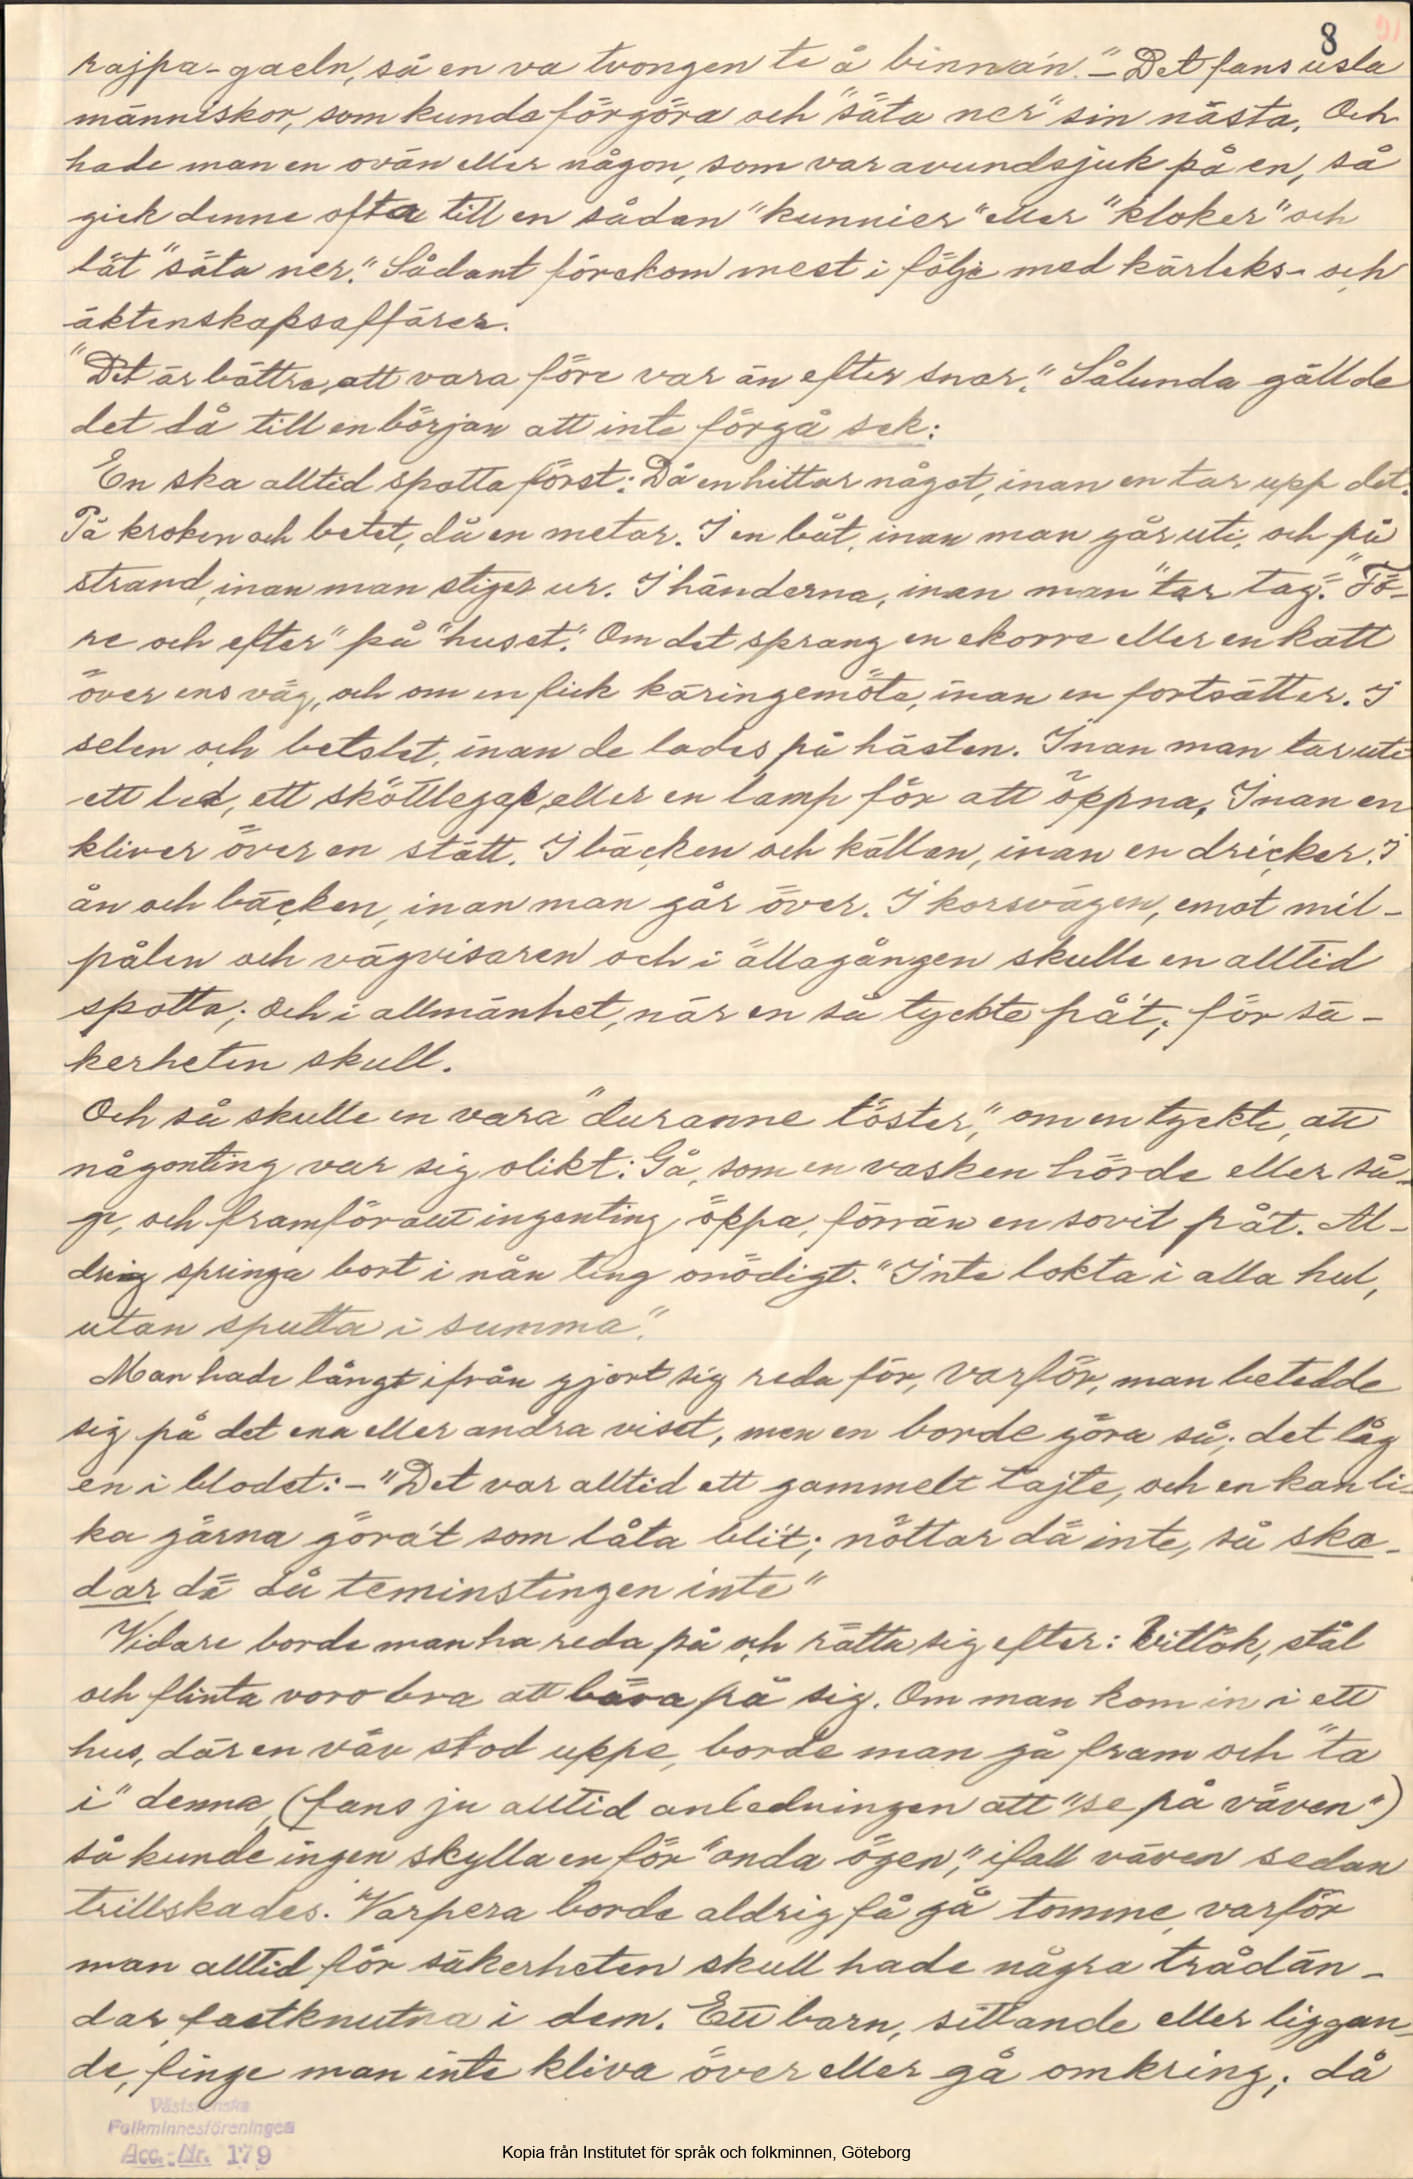 8 91
rajpa-gaeln, så en va tvongen te å binnán." – Det fans usla
människor, som kunde förgöra och "säta ner" sin nästa. Och
hade man en ovän eller någon, som var avundsjuk på en, så
gick denne ofta till en sådan "kunnier" eller "kloker" och
lät "säta ner." Sådant förekom mest i följe med kärleks- och
äktenskapsaffärer.
"Det är bättre, att vara före var än efter snar." Sålunda gällde
det då till en början att inte förgå sek:
En ska alltid spotta först: Då en hittar något, inan en tar upp det.
På kroken och betet, då en metar. I en båt, inan man går uti, och på
strand, inan man stiger ur. I händerna, inan man "tar tag." "Fö-
re och efter" på "huset." Om det sprang en ekorre eller en katt
över ens väg, och om en fick käringemöte, inan en fortsätter. I
selen och betslet, inan de lades på hästen. Inan man tar uti
ett led, ett sköttlegap, eller en lamp för att öppna. Inan en
kliver över en stätt. I bäcken och källan, inan en dricker. I
ån och bäcken, inan man går över. I korsvägen, emot mil-
pålen och vägvisaren och i ällagången skulle en alltid
spotta; och i allmänhet, när en så tyckte på't; för sä-
kerheten skull.
Och så skulle en vara "duranne töster," om en tyckte, att
någonting var sig olikt: Gå, som en vasken hörde eller så-
ge, och framförallt ingenting öppa, förrän en sovit på't. Al-
drig springa bort i nån ting onödigt. "Inte lokta i alla hul,
utan sputta i summa."
Man hade långt ifrån gjort sig reda för, varför, man betedde
sig på det ena eller andra viset, men en borde göra så; det låg
en i blodet: – "Det var alltid ett gammelt tajte, och en kan li-
ka gärna göra't som låta bli't; nöttar dä inte, så ska-
dar dä då teminstingen inte"
Vidare borde man ha reda på och rätta sig efter: Vitlök, stål
och flinta voro bra att bära på sig. Om man kom in i ett
hus, där en väv stod uppe, borde man gå fram och "ta
i" denna, (fans ju alltid anledningen att "se på väven")
så kunde ingen skylla en för "onda ögen," ifall väven sedan
trillskades. Varpera borde aldrig få gå tomme, varför
man alltid för säkerheten skull hade några trådän-
dar fastknutna i dem. Ett barn, sittande eller liggan-
de, finge man inte kliva över eller gå omkring; då
Västsvenska
Folkminnesföreningen
Acc.-Nr. 179
Kopia från Institutet för språk och folkminnen, Göteborg